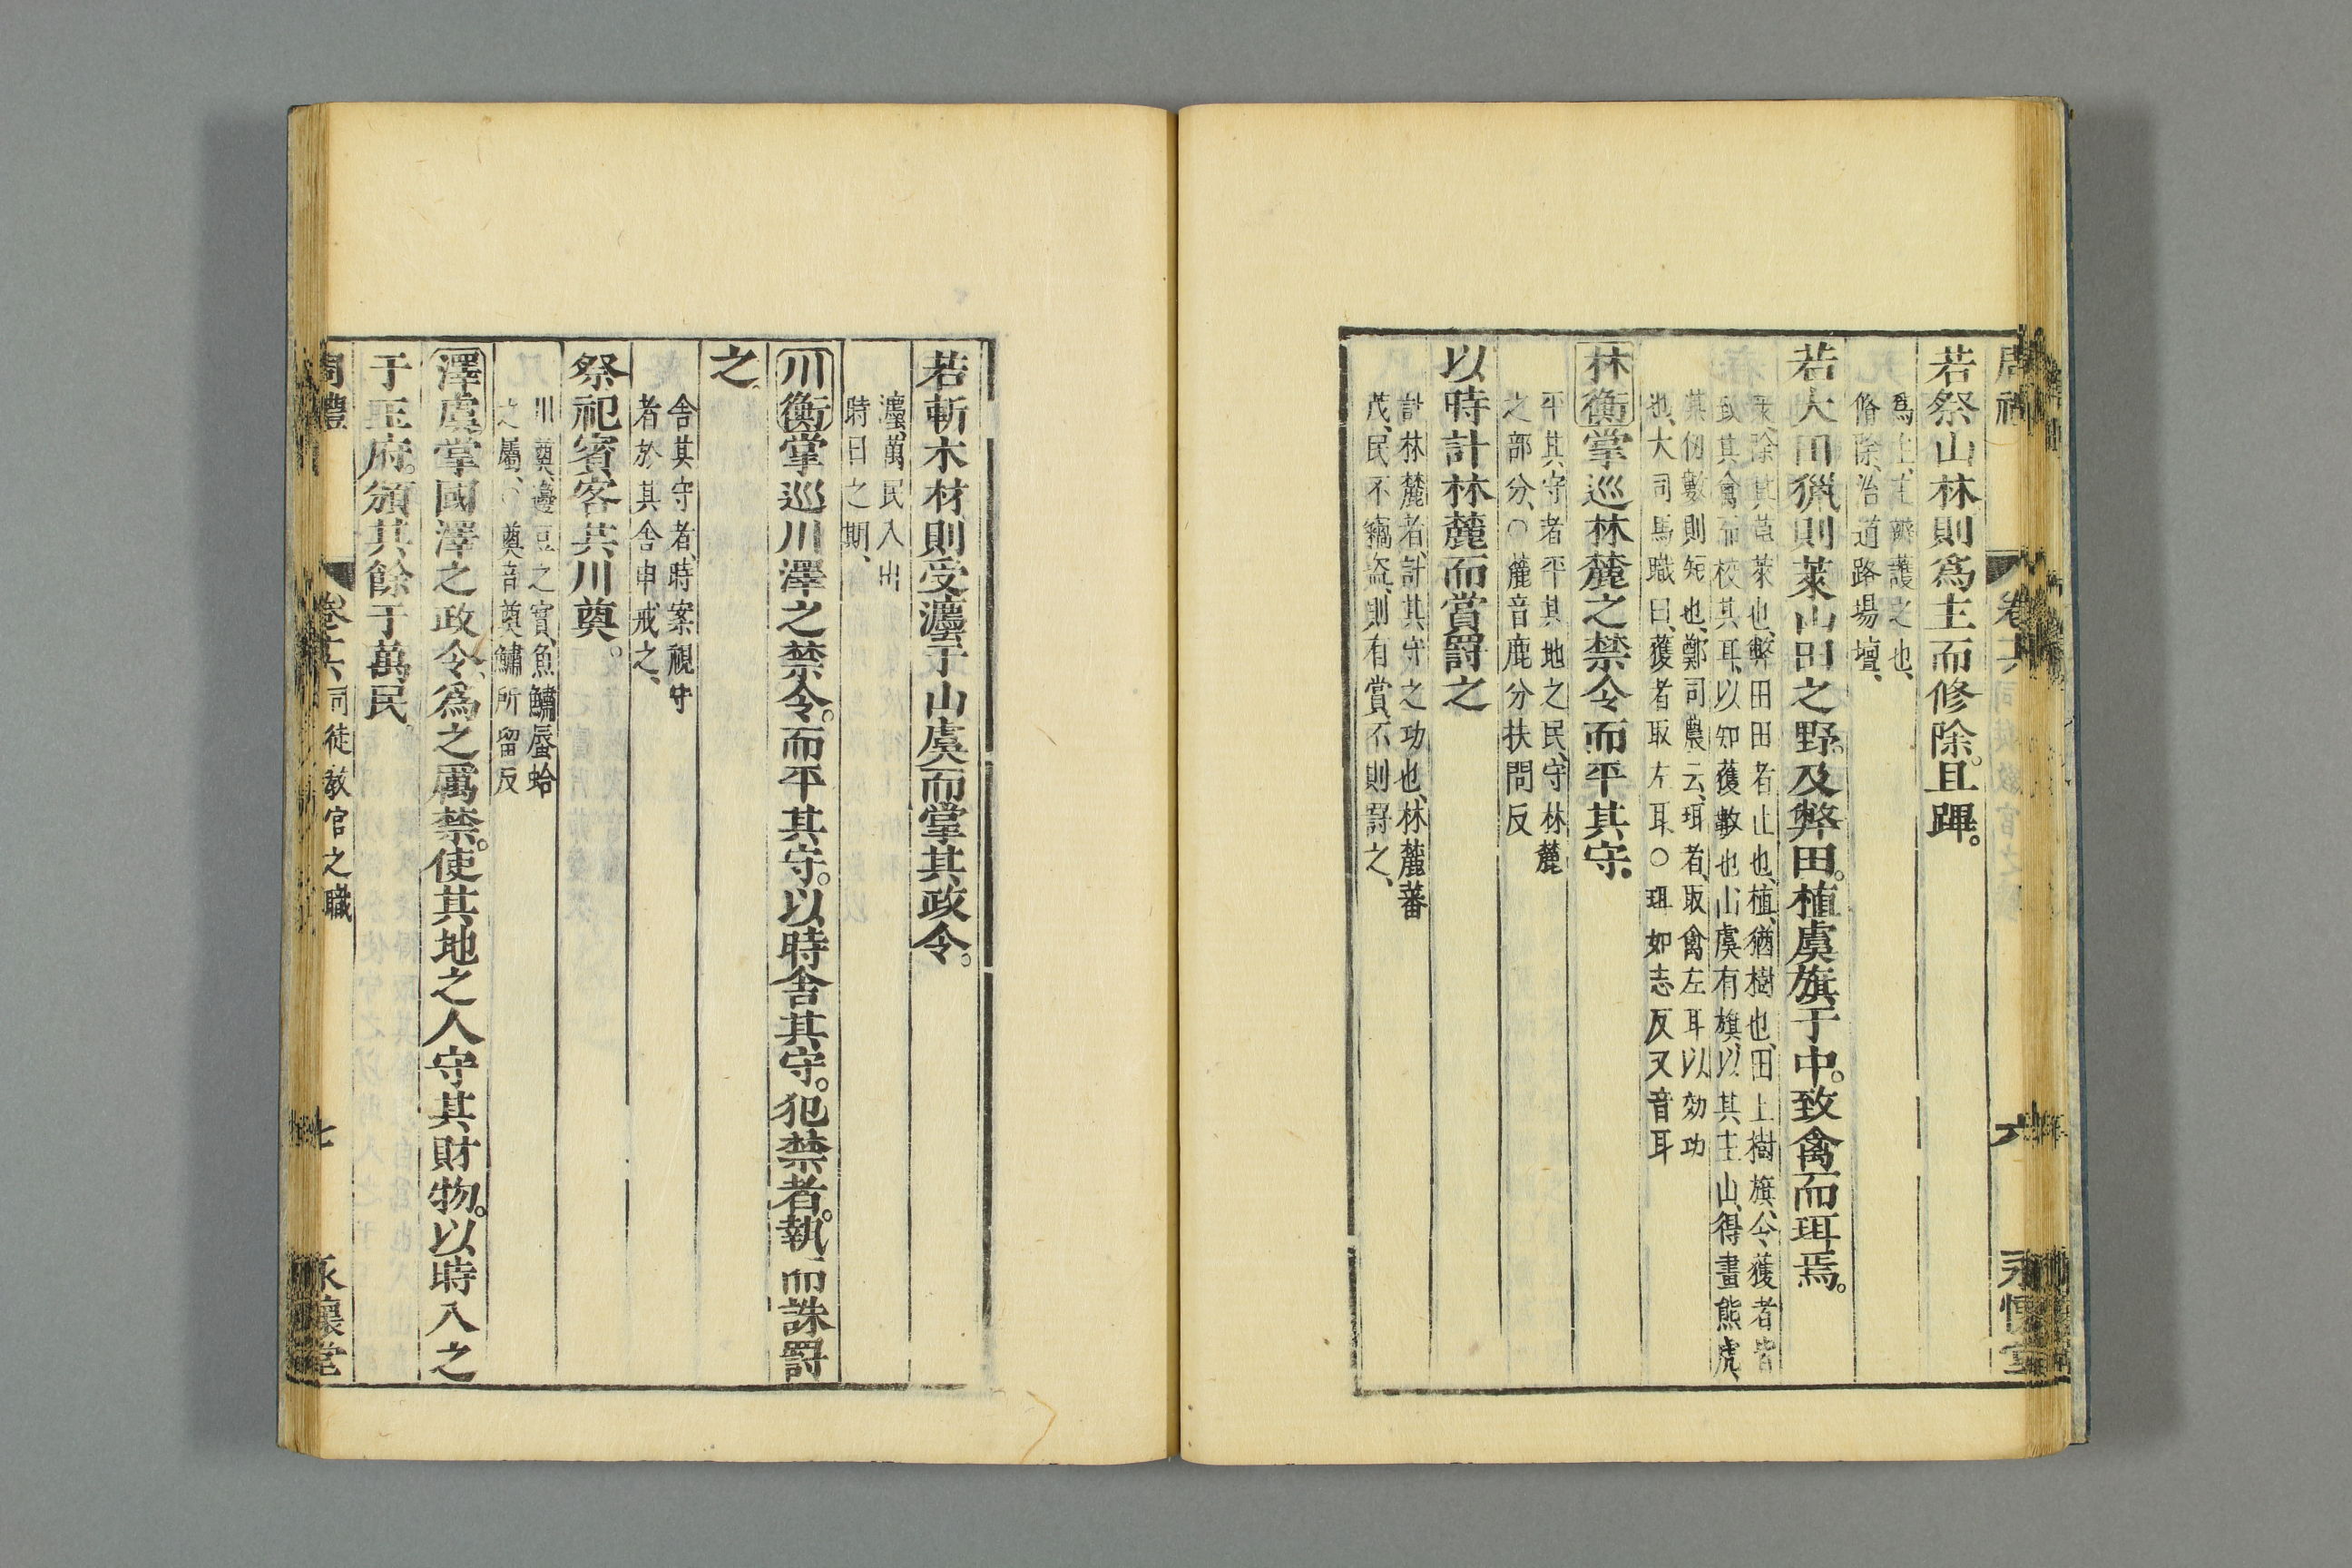 若祭山林則爲主而修除。且蹕。
爲主、主辦護之也、
脩除、治道路場壇、
若大田獵則萊山田之野。及弊田。植虞旗于中。致禽而珥焉。
萊、除其草萊也、弊田田者止也、植、猶樹也、田上樹旗、令獲者皆
致其禽而校其耳、以知獲數也山虞有旗、以其主山、得畫熊虎、
其仞數則短也、鄭司農云、珥者、取禽左耳以効功
也、大司馬職曰、獲者取左耳、○珥如志反又音耳
林衡掌巡林麓之禁令而平其守.
平其守者平其地之民、守林麓
之部分、○麓音鹿分扶問反
以時計林麓而賞罰之
計林麓者、計其守之功也、林麓蕃
茂、民不竊盜、則有賞、不則罰之、
若斬木材則受灋于山虞而掌其政令。
灋、萬民入出
時日之期、
川衡掌巡川澤之禁令。而平其守。以時舍其守。犯禁者。執而誅罰
之。
舍其守者、時案視守
者於其舍申戒之、
祭祀賓客共川奠。
川奠、籩豆之實、魚鱐蜃蛤
之屬、○奠音奠鱐所留反
澤虞掌國澤之政令、爲之厲禁。使其地之人守其財物。以時入之
于玉府。頒其餘于萬民。
周禮 卷十六 司徒教官之職 七 永懷堂